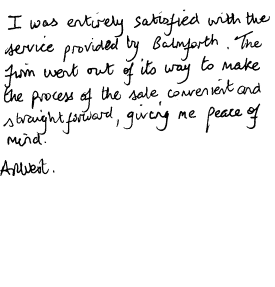 I was entirely satisfied with the
service provided by Balmforth. The
firm went out of its way to make
the process of the sale, convenient and
straightforward, giving me peace of
mind.